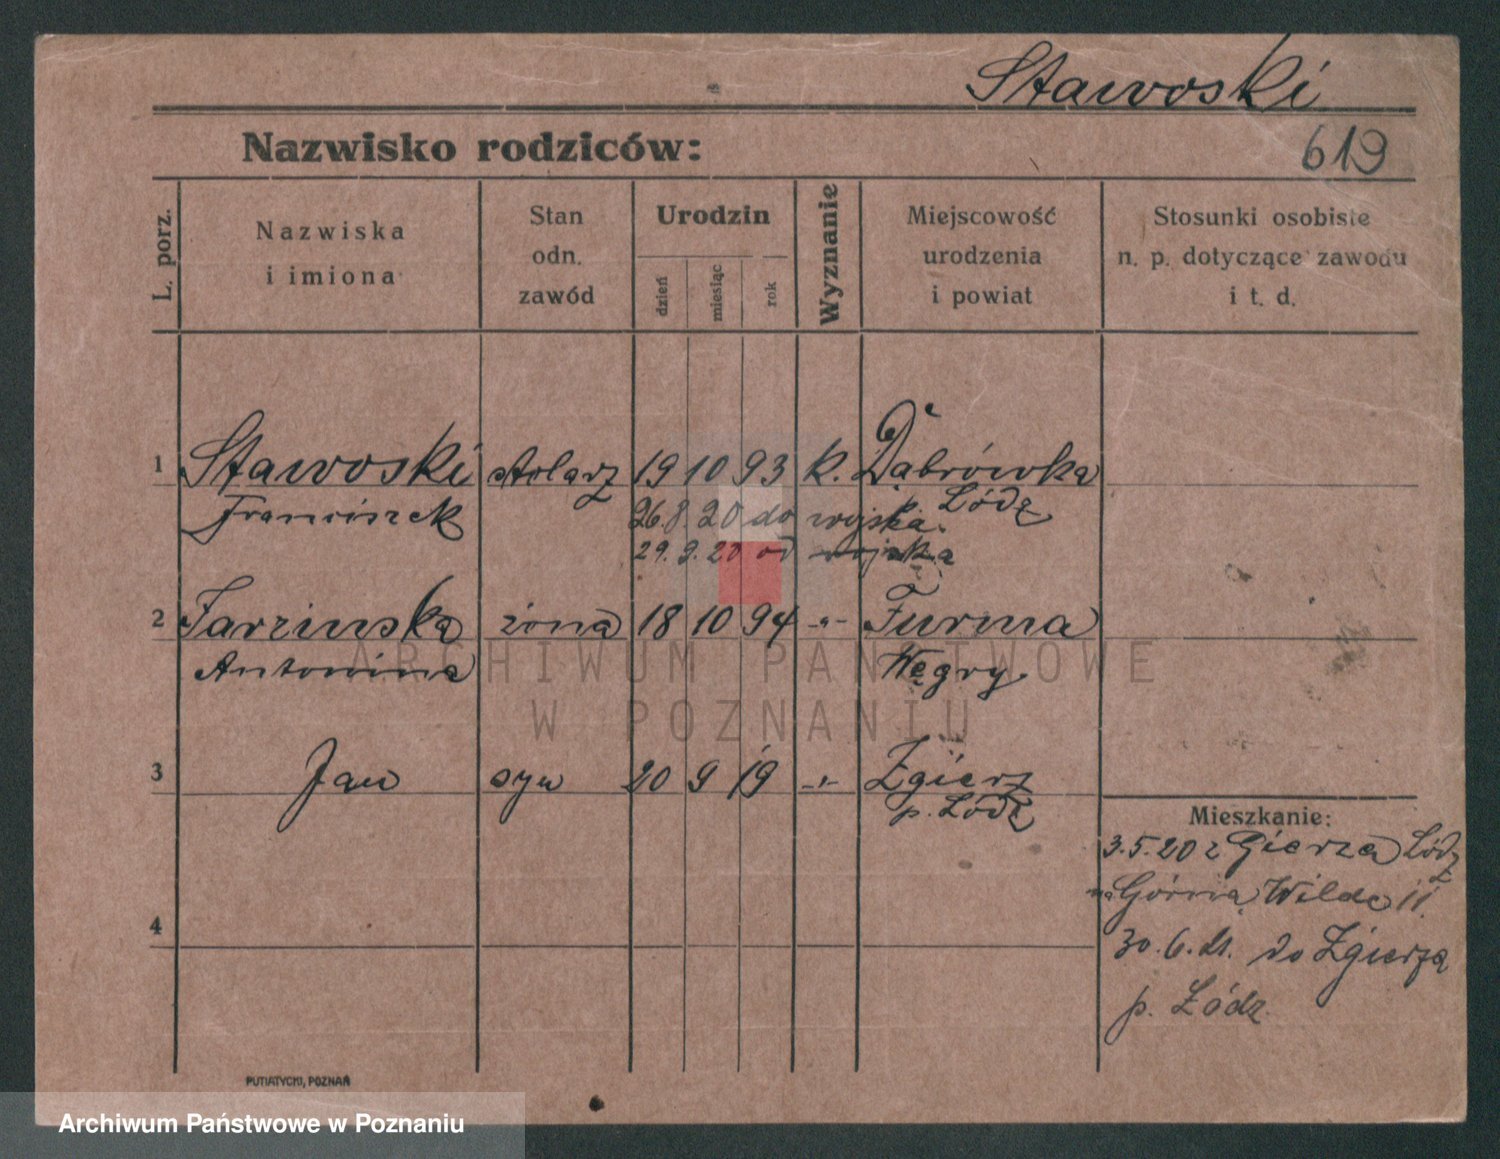 Stawoski
619
Nazwisko rodziców:
L. porz.
Nazwiska
i imiona
Stan
odn.
zawód
Urodzin
dzień
miesiąc
rok
Wyznanie
Miejscowość
urodzenia
i powiat
Stosunki osobiste
n. p. dotyczące zawodu
i t. d.
1 Stawoski stolarz 19 10 93 k. Dąbrówka
Franciszek
p. Łódź
26.8.20 do wojska
29.9.20 od wojska
2 Tarzinska żona 18 10 94 -"- Furma
Antonina Węgry
3 Jan syn 20 9 19 -"- Zgierz
p. Łódź
4
Mieszkanie:
3.5.20 z Gierza Łódź
na Górna Wilda 11.
30.6.21. do Zgierza
p. Łódz.
PUTIATYCKI, POZNAŃ
ARCHIWUM PAŃSTWOWE
W POZNANIU
Archiwum Państwowe w Poznaniu